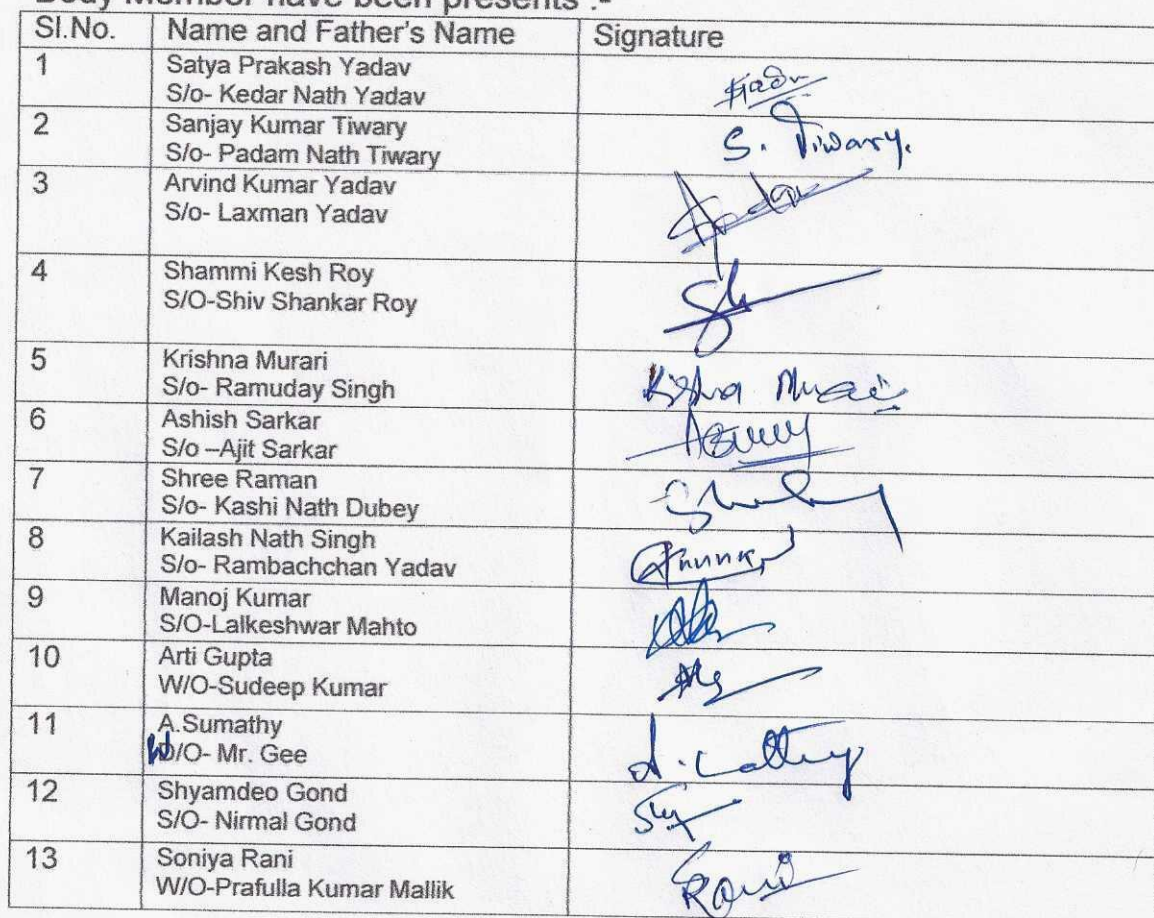 Body Member have been presents :-
Sl.No. Name and Father's Name Signature
1 Satya Prakash Yadav
S/o- Kedar Nath Yadav
2 Sanjay Kumar Tiwary S. Tiwary.
S/o- Padam Nath Tiwary
3 Arvind Kumar Yadav
S/o- Laxman Yadav
4 Shammi Kesh Roy
S/O-Shiv Shankar Roy
5 Krishna Murari
S/o- Ramuday Singh
6 Ashish Sarkar
S/o –Ajit Sarkar
7 Shree Raman
S/o- Kashi Nath Dubey
8 Kailash Nath Singh
S/o- Rambachchan Yadav
9 Manoj Kumar
S/O-Lalkeshwar Mahto
10 Arti Gupta
W/O-Sudeep Kumar
11 A.Sumathy
W/O- Mr. Gee
12 Shyamdeo Gond
S/O- Nirmal Gond
13 Soniya Rani
W/O-Prafulla Kumar Mallik Rani